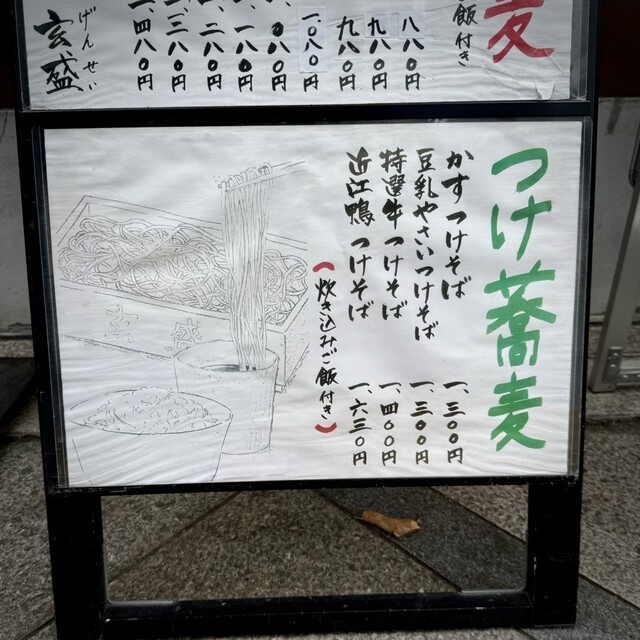 麦
飯付き
八八〇円
九八〇円
九八〇円
一、〇八〇円
〇八〇円
一八〇円
一、二八〇円
一、三八〇円
一、四八〇円
げんせい
玄盛
つけ蕎麦
かすつけそば 一、三〇〇円
豆乳やさいつけそば 一、三〇〇円
特選牛つけそば 一、四〇〇円
近江鴨つけそば 一六三〇円
(炊き込みご飯付き)